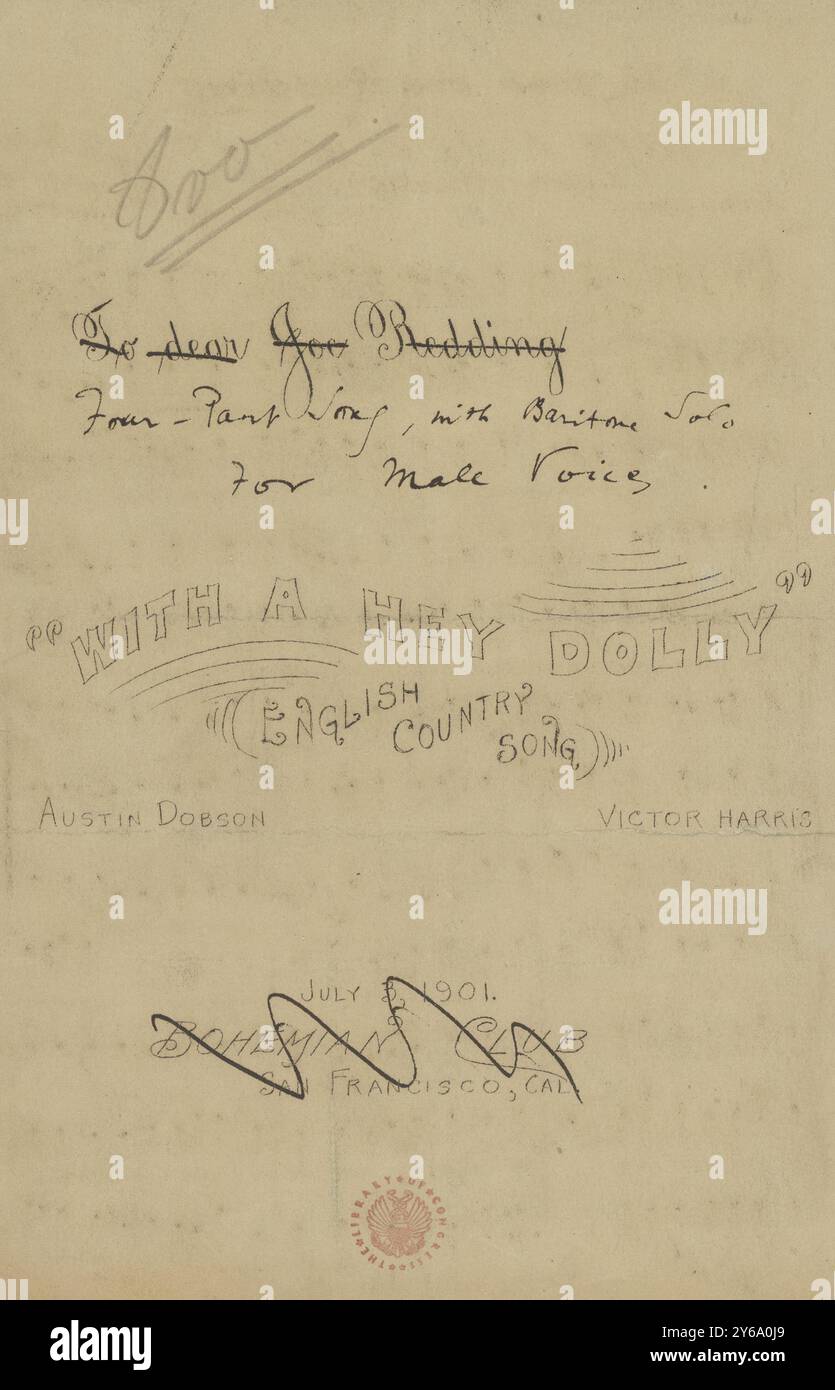 To dear Joe Redding
Four-Part Song, with Baritone Solo
For Male Voices.
"WITH A HEY DOLLY"
(ENGLISH COUNTRY SONG)
AUSTIN DOBSON VICTOR HARRIS
JULY 3, 1901.
BOHEMIAN CLUB
SAN FRANCISCO, CAL.
THE LIBRARY OF CONGRESS
alamy
alamy
a
alamy
Image ID: 2Y6A0J9
www.alamy.com